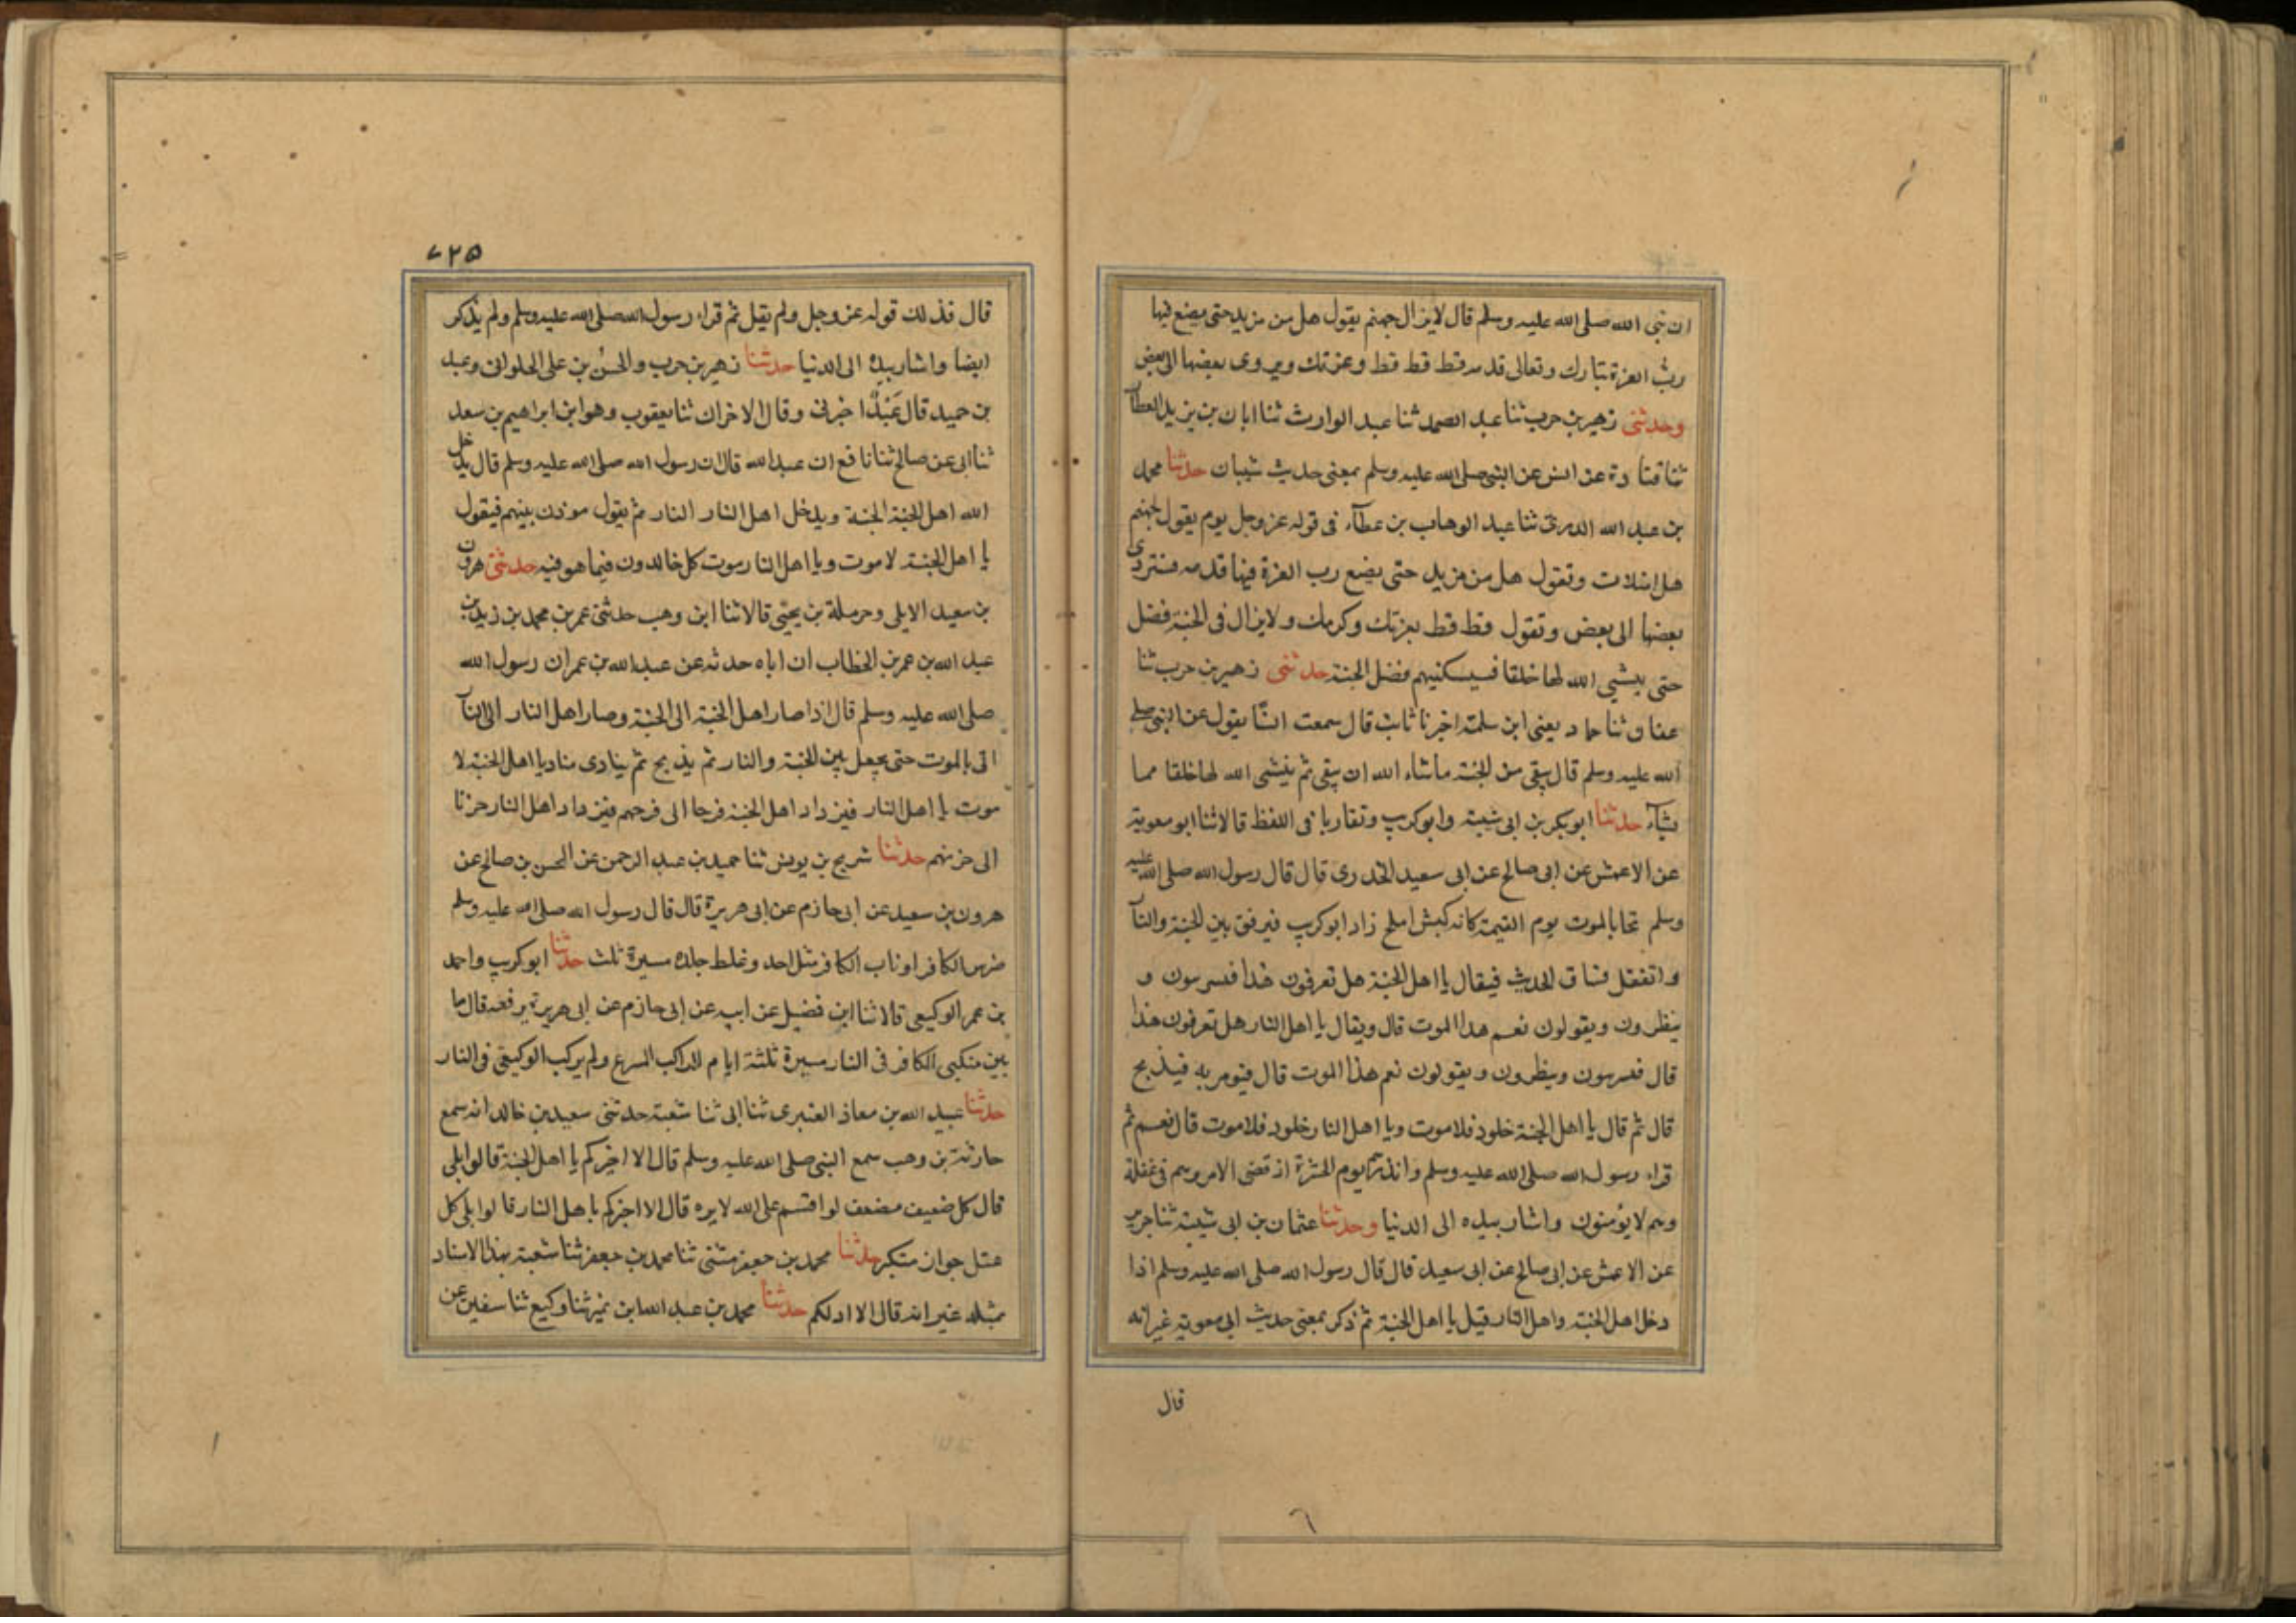 ان نبى الله صلى الله عليه وسلم قال لايزال جهنم يقول هل من مزيد حتى يضع فيها
رب العزة تبارك وتعالى قدمه قط قط قط وعزتك ويروى بعضها الى بعض
وحدثنى زهير بن حرب ثنا عبد الصمد ثنا عبد الوارث ثنا ابان بن يزيد العطار
ثنا قتادة عن انس عن النبى صلى الله عليه وسلم بمعنى حديث شيبان حدثنا محمد
بن عبد الله الدرى ثنا عبد الوهاب بن عطآء فى قوله عز وجل يوم يقول لجهنم
هل امتلات وتقول هل من مزيد حتى يضع رب العزة فيها قدمه فتنزوى
بعضها الى بعض وتقول قط قط بعزتك وكرمك ولايزال فى الجنة فضل
حتى ينشئ الله لها خلقا فيسكنيهم فضل الجنة حدثنى زهير بن حرب ثنا
عفان ثنا حماد يعنى ابن سلمة اخبرنا ثابت قال سمعت انسًا يقول عن النبى صلى
الله عليه وسلم قال يبقى من الجنة ماشاء الله ان يبقى ثم ينشى الله لها خلقا مما
يشآء حدثنا ابو بكر بن ابى شيبة وابوكريب وتقاربا فى اللفظ قالا ثنا ابو معوية
عن الاعمش عن ابى صالح عن ابى سعيد الخدرى قال قال رسول الله صلى الله عليه
وسلم تجا بالموت يوم القيمة كانه كبش املح زاد ابوكريب فيرفق بين الجنة والنآ
واتفقل فساق الحديث فيقال يا اهل الجنة هل تعرفون هذا فيسرسون و
ينظرون ويقولون نعم هذا الموت قال ويقال يا اهل النار هل تعرفون هذا
قال فيسرسون وينظرون ويقولون نعم هذا الموت قال فيومر به فيذبح
قال ثم قال يا اهل الجنة خلود فلاموت ويا اهل النار خلود فلاموت قال نعم ثم
قراء رسول الله صلى الله عليه وسلم وانذرهم يوم الحسرة اذ قضى الامر وهم فى غفلة
وهم لايؤمنون واشار بيده الى الدنيا وحدثنا عثمان بن ابى شيبة ثنا جرير
عن الاعمش عن ابى صالح عن ابى سعيد قال قال رسول الله صلى الله عليه وسلم اذا
دخل اهل الجنة واهل النار قيل يا اهل الجنة ثم ذكر بمعنى حديث ابى معوية غير انه
قال
٦
٧٢٥
قال فذلك قوله عز وجل ولم يقل ثم قراء رسول الله صلى الله عليه وسلم ولم يذكر
ايضا واشار بيده الى الدنيا حدثنا زهير بن حرب والحسن بن على الحلوانى وعبد
بن حميد قال عَبدٌ اخبرنى وقال الاخران ثنا يعقوب وهو ابن ابراهيم بن سعد
ثنا ابى عن صالح ثنا نافع ان عبد الله قال ان رسول الله صلى الله عليه وسلم قال يدخل
الله اهل الجنة الجنة ويدخل اهل النار النار ثم يقول موذن بينهم فيقول
يا اهل الجنة لا موت ويا اهل النار موت كل خالدون فيما هو فيه حدثنى هرون
بن سعيد الايلى وحرملة بن يحيى قالا ثنا ابن وهب حدثنى عمر بن محمد بن زيد بن
عبد الله بن عمر بن الخطاب ان اباه حدثه عن عبد الله بن عمر ان رسول الله
صلى الله عليه وسلم قال اذا صار اهل الجنة الى الجنة وصار اهل النار الى النآ
اتى بالموت حتى يجعل بين الجنة والنار ثم يذبح ثم ينادى مناد يا اهل الجنة لا
موت يا اهل النار فيزداد اهل الجنة فرحا الى فرحهم فيزداد اهل النار حزنا
الى حزنهم حدثنا شريح بن يونس ثنا حميد بن عبد الرحمن عن الحسن بن صالح عن
هرون بن سعيد عن ابى حازم عن ابى هريرة قال قال رسول الله صلى الله عليه وسلم
ضرس الكافر اوناب الكافر مثل احد وغلظ جلده مسيرة ثلث حدثنا ابوكريب واحمد
بن عمر الوكيعى قالا ثنا ابن فضيل عن ابيه عن ابى حازم عن ابى هريرة يرفعه قال ما
بين منكبى الكافر فى النار مسيرة ثلثة ايام للراكب المسرع ولم يركب الوكيعى فى النار
حدثنا عبيد الله بن معاذ العنبرى ثنا ابى ثنا شعبة حدثنى سعيد بن خالد انه سمع
حارثة بن وهب سمع النبى صلى الله عليه وسلم قال الا اخبركم يا اهل الجنة قالوا بلى
قال كل ضعيف مضعف لو اقسم على الله لابره قال الا اخبركم باهل النار قالوا بلى كل
عتل جواز متكبر حدثنا محمد بن جعفر مثنى ثنا محمد بن جعفر ثنا شعبة بهذا الاسناد
بمثله غير انه قال الا ادلكم حدثنا محمد بن عبد الله ابن نمير ثنا وكيع ثنا سفين عن